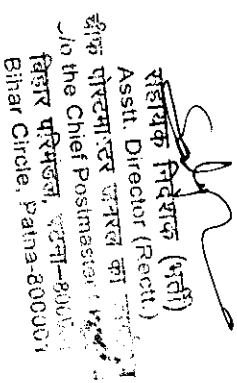 सहायक निदेशक (भर्ती)
Asstt. Director (Rectt.)
चीफ पोस्टमास्टर जनरल का
O/o the Chief Postmaster
बिहार परिमंडल, पटना-800
Bihar Circle, Patna-800001